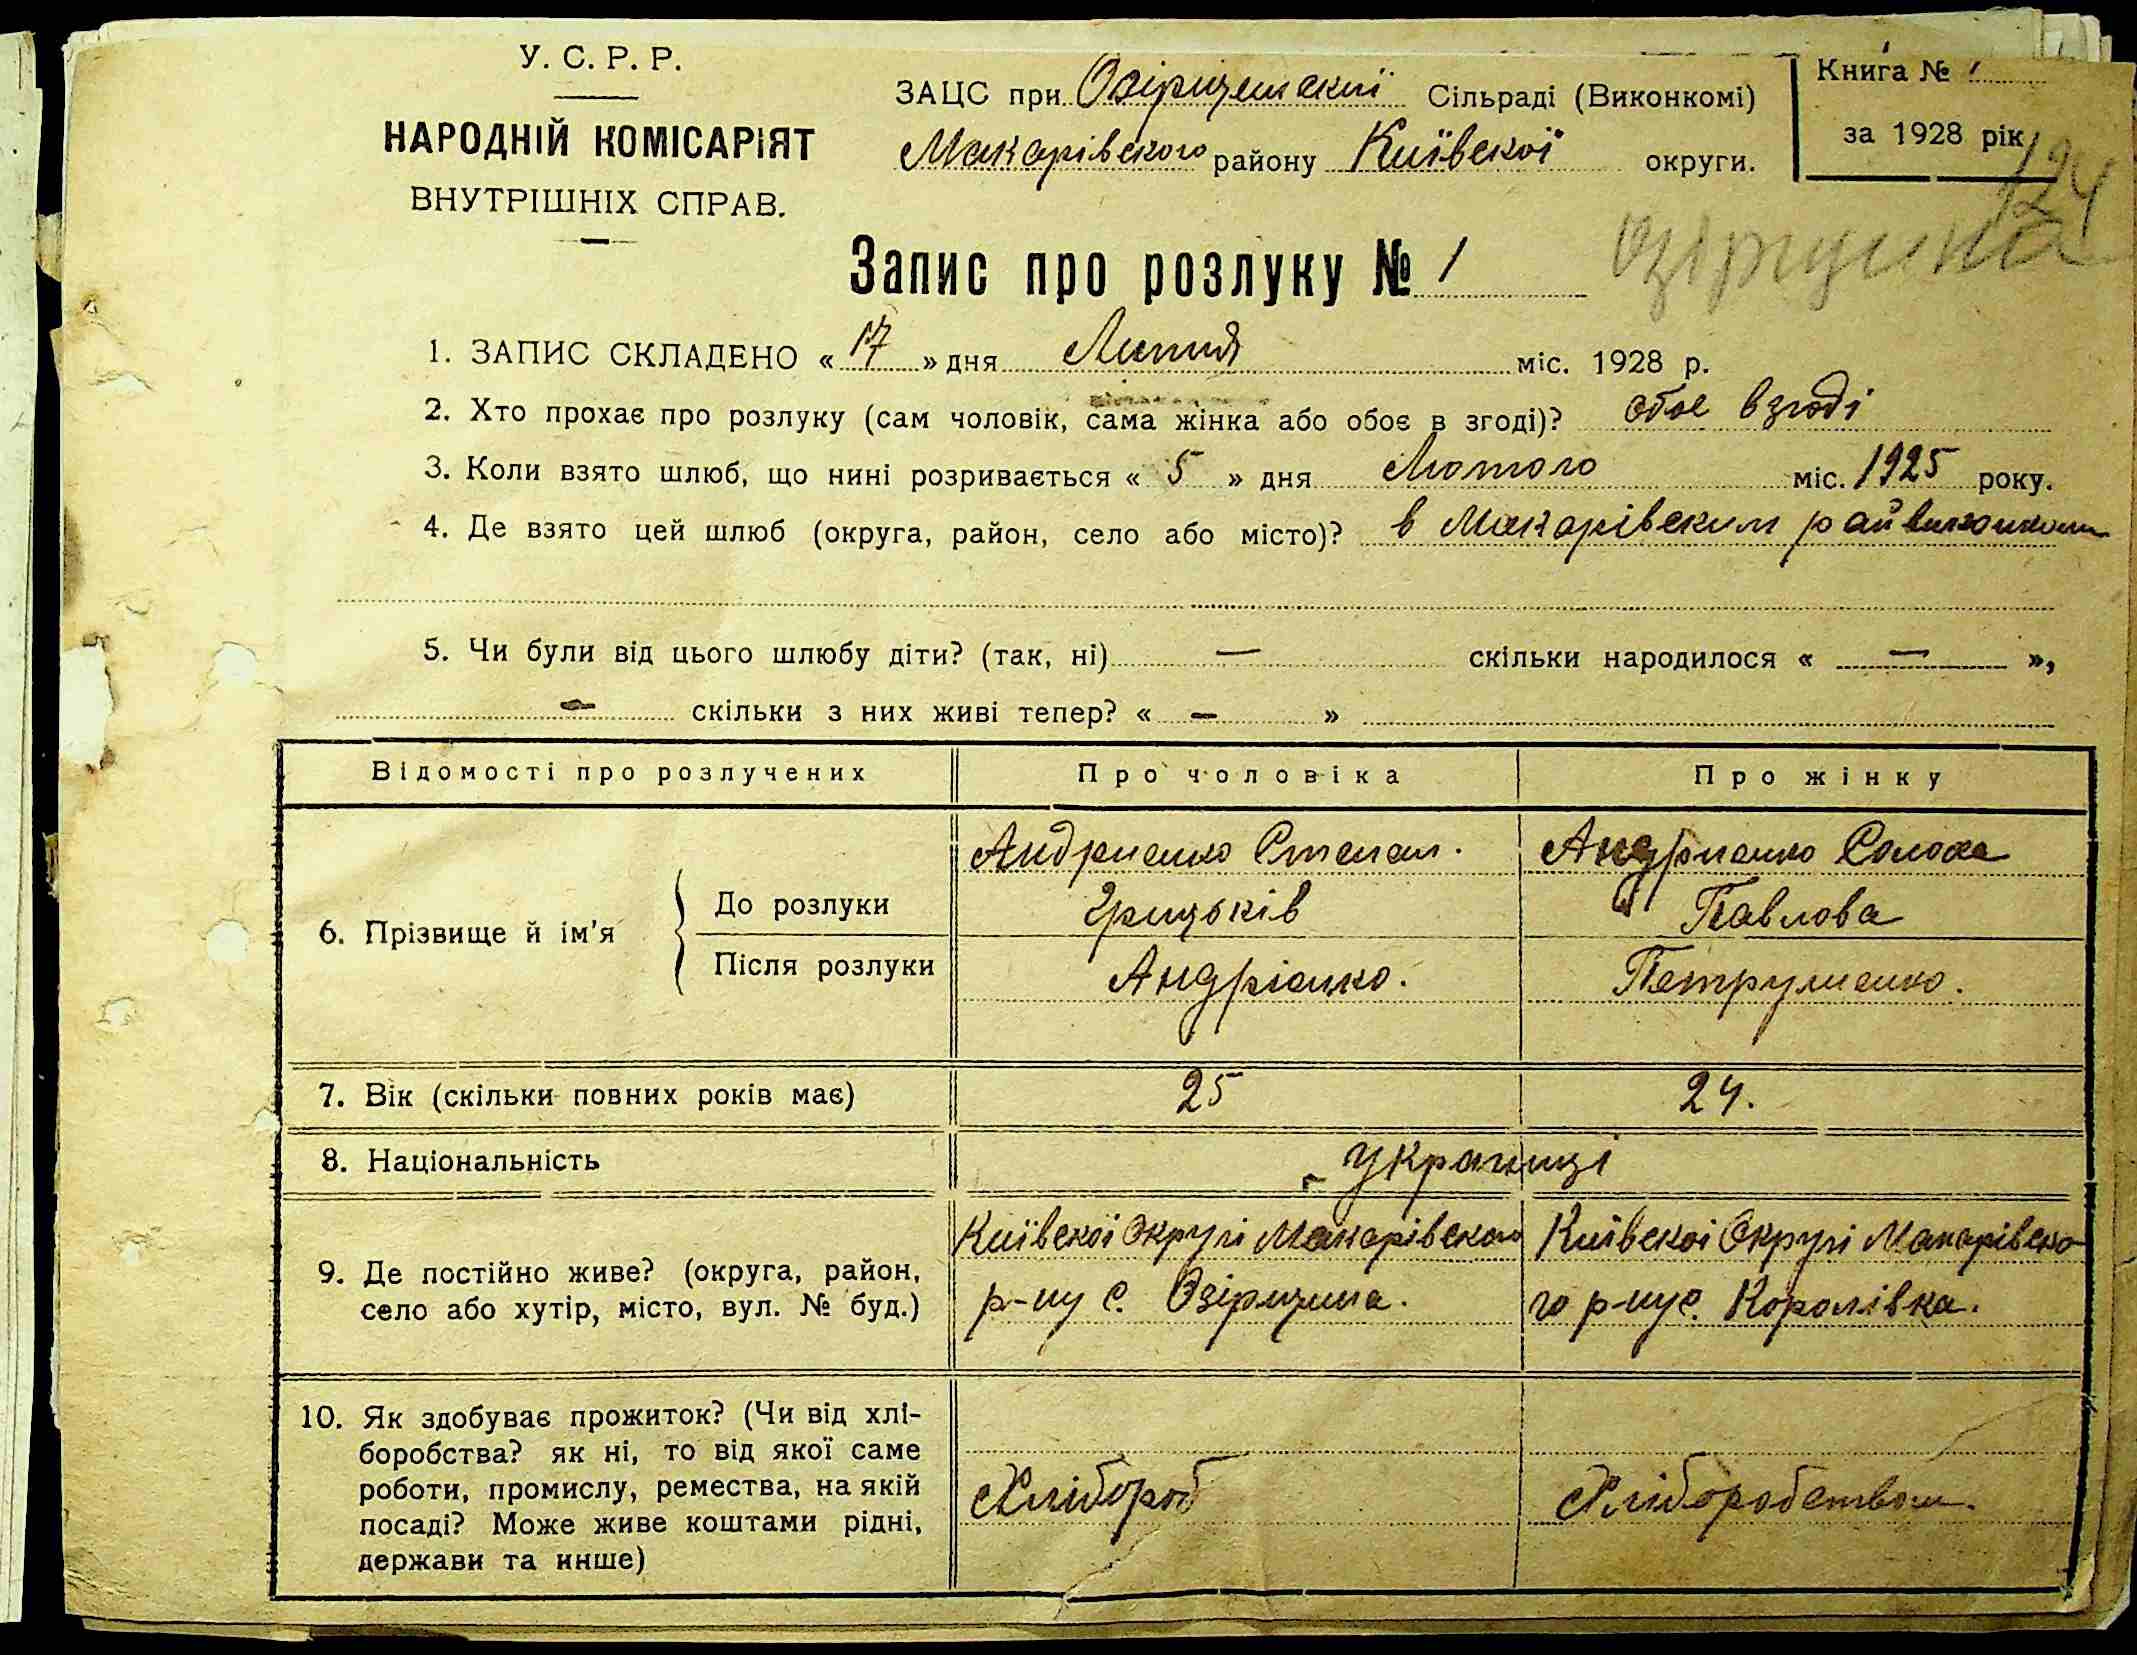 У. С. Р. Р.
НАРОДНІЙ КОМІСАРІЯТ
ВНУТРІШНІХ СПРАВ.
ЗАЦС при Озірщенській Сільраді (Виконкомі)
Макарівского району Київскої округи.
Книга № 1
за 1928 рік
124
Озірщина
Запис про розлуку № 1
1. ЗАПИС СКЛАДЕНО « 17 » дня Липня міс. 1928 р.
2. Хто прохає про розлуку (сам чоловік, сама жінка або обоє в згоді)? обоє в згоді
3. Коли взято шлюб, що нині розривається « 5 » дня Лютого міс. 1925 року.
4. Де взято цей шлюб (округа, район, село або місто)? в Макарівским райвиконкоми
5. Чи були від цього шлюбу діти? (так, ні) — скільки народилося « — »,
— скільки з них живі тепер? « — »
Відомості про розлучених
Про чоловіка
Про жінку
6. Прізвище й ім'я
До розлуки
Андриенко Степан.
Грицьків
Андриенко Солоха
Павлова
Після розлуки
Андріенко.
Петруменко.
7. Вік (скільки повних років має)
25
24.
8. Національність
Украинці
9. Де постійно живе? (округа, район,
село або хутір, місто, вул. № буд.)
Київскої Округі Макарівского
р-ну с. Озірщина.
Київскоі Округі Макарівско
го р-ну с. Королівка.
10. Як здобуває прожиток? (Чи від хлі-
боробства? як ні, то від якої саме
роботи, промислу, ремества, на якій
посаді? Може живе коштами рідні,
держави та инше)
Хлібороб
Хліборобством.